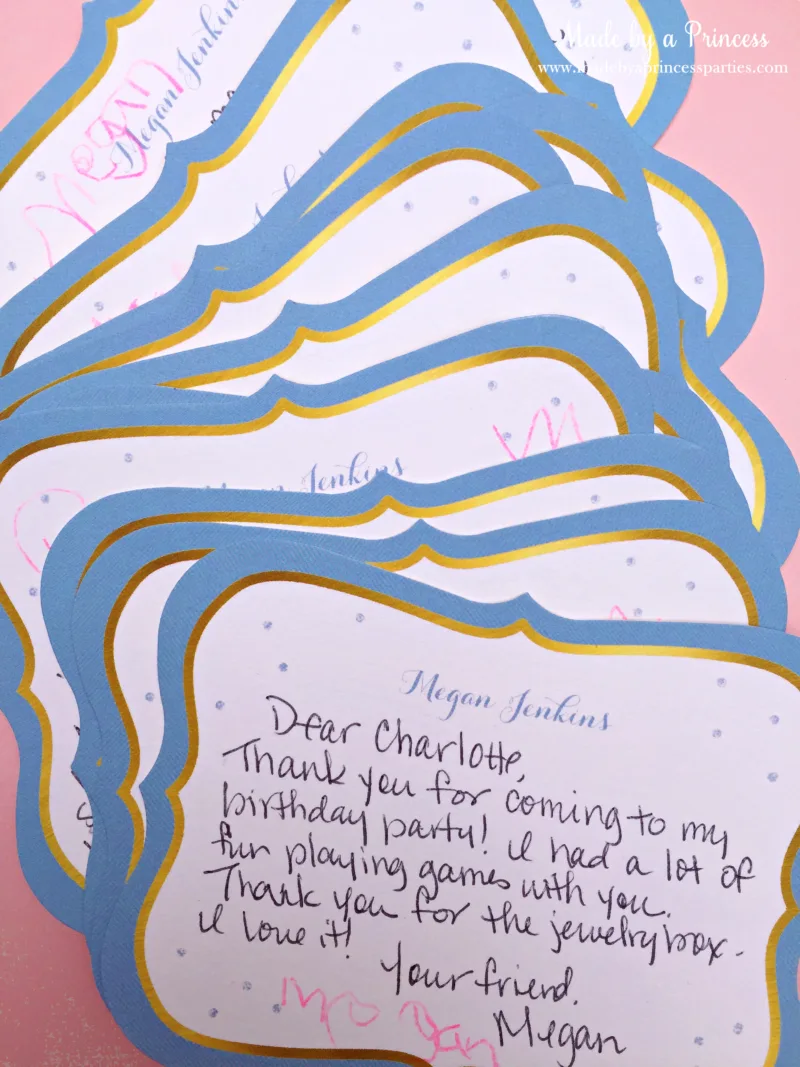 Made by a Princess
www.madebyaprincessparties.com
Megan Jenkins
megan
Megan Jenkins
Megan Jenkins
Dear Charlotte,
Thank you for coming to my
birthday party! I had a lot of
fun playing games with you.
Thank you for the jewelry box.
I love it!
Your friend,
Megan
Megan